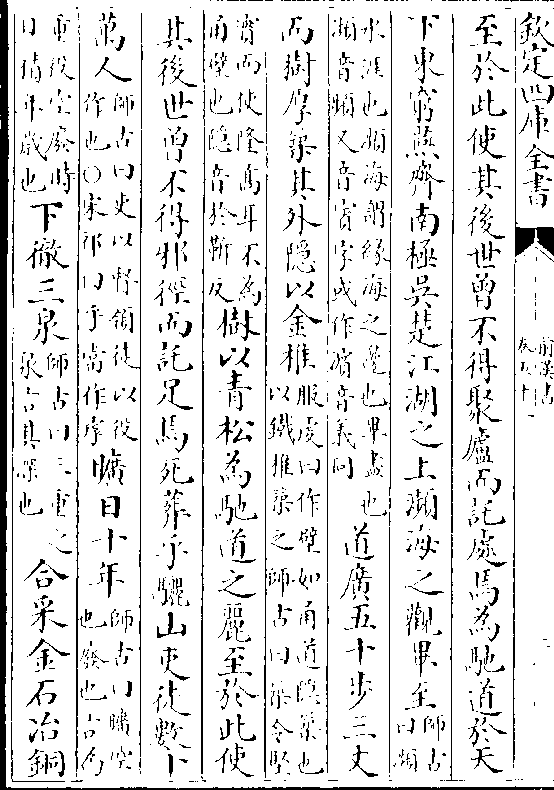 欽定四庫全書
前漢書
卷五十一
至於此使其後世曾不得聚廬而託處焉為馳道於天
下東窮燕齊南極吳楚江湖之上瀕海之觀畢至師古曰瀕
水涯也瀕海謂緣海之邊也畢盡也瀕音頻又音賔字或作濱音義同道廣五十步三丈
而樹厚築其外隱以金椎服虔曰作壁如甬道隱築也以鐵椎築之師古曰築令堅
實而使隆高耳不為甬壁也隱音於靳反樹以青松為馳道之麗至於此使
其後世曾不得邪徑而託足焉死葬乎驪山吏徒數十
萬人師古曰吏以督領徒以役作也○宋祁曰乎當作虖曠日十年師古曰曠空也廢也言為
重役空廢時日積年歲也下徹三泉師古曰三重之泉言其深也合采金石冶銅